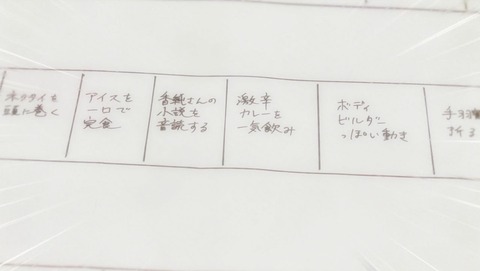 ネクタイを
頭に巻く
アイスを
一口で
完食
香純さんの
小説を
音読する
激辛
カレーを
一気飲み
ボディ
ビルダー
っぽい動き
手羽
折る